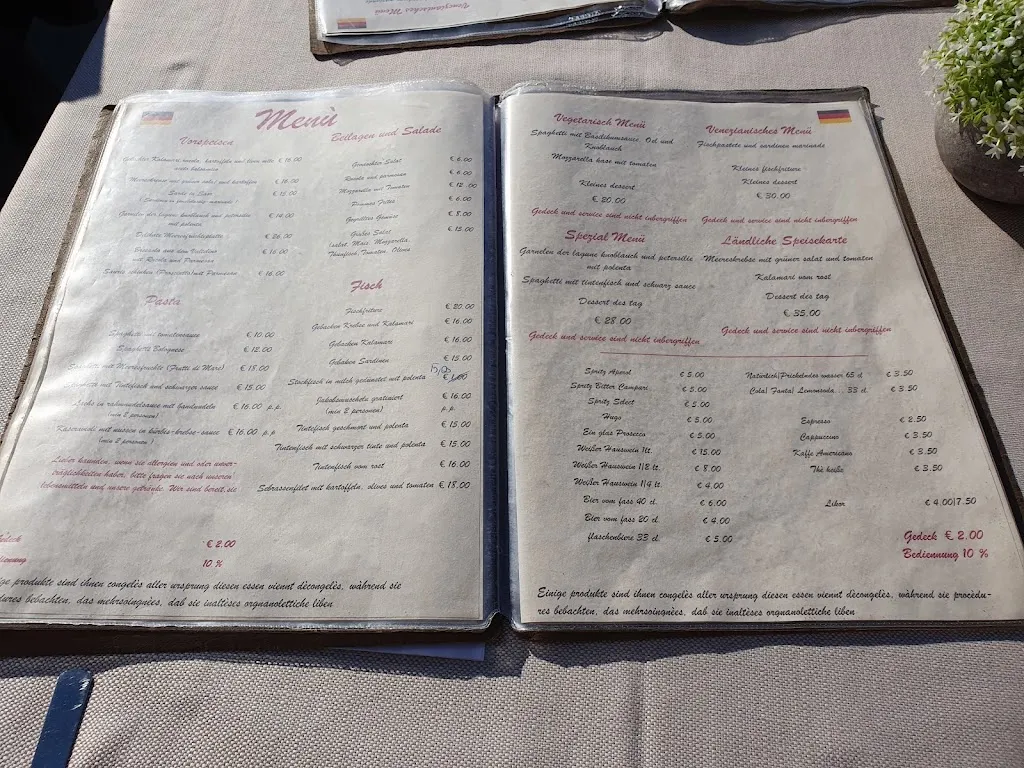 Venezianisches Menü
Menù
Vorspeisen
€ 16.00
€ 18.00
€ 15.00
€ 14.00
€ 26.00
€ 16.00
€ 16.00
Pasta
€ 10.00
Spaghetti Bolognese € 12.00
€ 18.00
€ 15.00
€ 16.00 p.p.
(min 2 personen)
€ 16.00 p.p
(min 2 personen)
Lieber kunden, wenn sie allergien und oder unver-
träglichkeiten haber, bitte fragen sie nach unseren
lebensmitteln und unsere getränke. Wir sind bereit sie
€ 2.00
10 %
Beilagen und Salade
Gemischter Salat € 6.00
Rucola und parmesan € 6.00
Mozzarella mit Tomaten € 12.00
Pommes Frites € 6.00
Gegrilltes Gemuse € 8.00
Großes Salat € 15.00
(salat, Mais, Mozzarella,
Thunfisch, Tomaten, Oliven
Fisch
Fischfriture € 20.00
Gebacken Krebse und Kalamari € 16.00
Gebacken Kalamari € 16.00
Gebaken Sardinen € 15.00
Stockfisch in milch gedünstet mit polenta 15,00
Jakobsmuscheln gratiniert € 16.00
(min 2 personen) p.p.
Tintefisch geschmort und polenta € 15.00
Tintenfisch mit schwarzer tinte und polenta € 15.00
Tintenfisch vom rost € 16.00
Sebrassenfilet mit kartoffeln, olives und tomaten € 18.00
ige produkte sind ihnen congelès aller ursprung diesen essen viennt dècongelès, wàhrend sie
ures bebachten, das mehrsoingnèes, dab sie inaltèses orgnanolettiche liben
Vegetarisch Menü
Spaghetti mit Basilikumsauce, Oel und
Knoblauch
Mozzarella kase mit tomaten
Kleines dessert
€ 20.00
Gedeck und service sind nicht inbergriffen
Venezianisches Menü
Fischpastete und sardenen marinade
Kleines fischfriture
Kleines dessert
€ 30.00
Gedeck und service sind nicht inbergriffen
Spezial Menü
Garnelen der lagune knoblauch und petersilie
mit polenta
Spaghetti mit tintenfisch und schwarz sauce
Dessert des tag
€ 28.00
Gedeck und service sind nicht inbergriffen
Ländliche Speisekarte
Meereskrebse mit grüner salat und tomaten
Kalamari vom rost
Dessert des tag
€ 35.00
Gedeck und service sind nicht inbergriffen
Spritz Aperol € 5.00
Spritz Bitter Campari € 5.00
Spritz Select € 5.00
Hugo € 5.00
Ein glas Prosecco € 5.00
Weißer Hauswein 1lt. € 15.00
Weißer Hauswein 1|2 lt. € 8.00
Weißer Hauswein 1|4 lt. € 4.00
Bier vom fass 40 cl. € 6.00
Bier vom fass 20 cl. € 4.00
flaschenbiere 33 cl. € 5.00
Natürlich|Prickelndes wasser 65 cl € 3.50
Cola| Fanta| Lemonsoda... 33 cl. € 3.50
Espresso € 2.50
Cappuccino € 3.50
Kaffe Americano € 3.50
Thè heiße € 3.50
Likor € 4.00|7.50
Gedeck € 2.00
Bediennung 10 %
Einige produkte sind ihnen congelès aller ursprung diesen essen viennt dècongelès, wàhrend sie procèdu-
res bebachten, das mehrsoingnèes, dab sie inaltèses orgnanolettiche liben